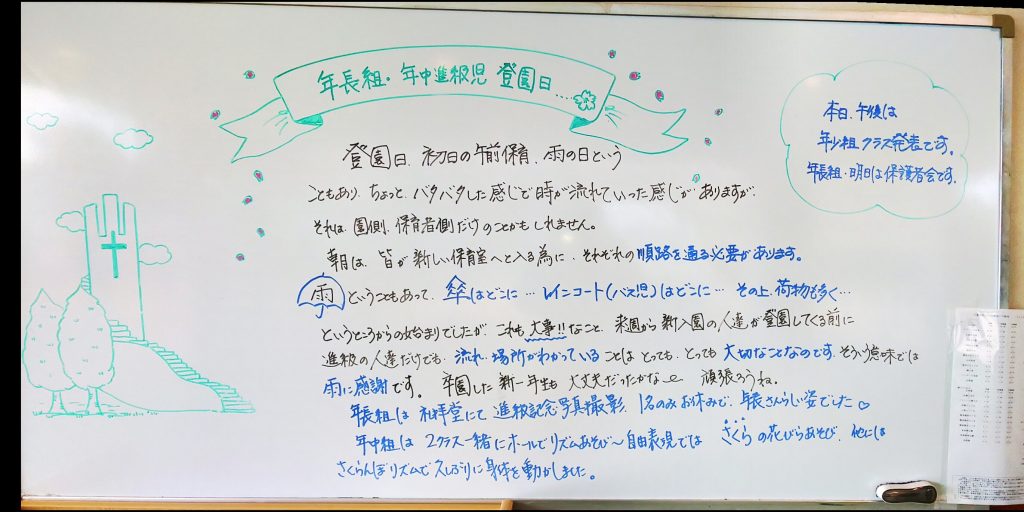 年長組・年中進級児 登園日……
本日、午後は
年少組クラス発表です。
年長組・明日は保護者会です。
登園日、初日の午前保育、雨の日という
こともあり、ちょっと、バタバタした感じで時が流れていった感じがありますが、
それは、園側、保育者側だけのことかもしれません。
朝は、皆が新しい保育室へと入る為に、それぞれの順路を通る必要があります。
雨ということもあって、傘はどこに…レインコート(バス児)はどこに…その上、荷物も多く…
というところからの始まりでしたが、これも大事!!なこと、来園から新入園の人達が登園してくる前に
進級の人達だけでも、流れ、場所がわかっていることはとっても、とっても大切なことなのです。そういう意味では
雨に感謝です。卒園した新一年生も大丈夫だったかな〜 頑張ろうね。
年長組は礼拝堂にて進級記念写真撮影、1名のみお休みで、年長さんらしい姿でした♡
年中組は2クラス一緒にホールでリズムあそび〜自由表現ではさくらの花びらあそび、他には
さくらんぼリズムで久しぶりに身体を動かしました。